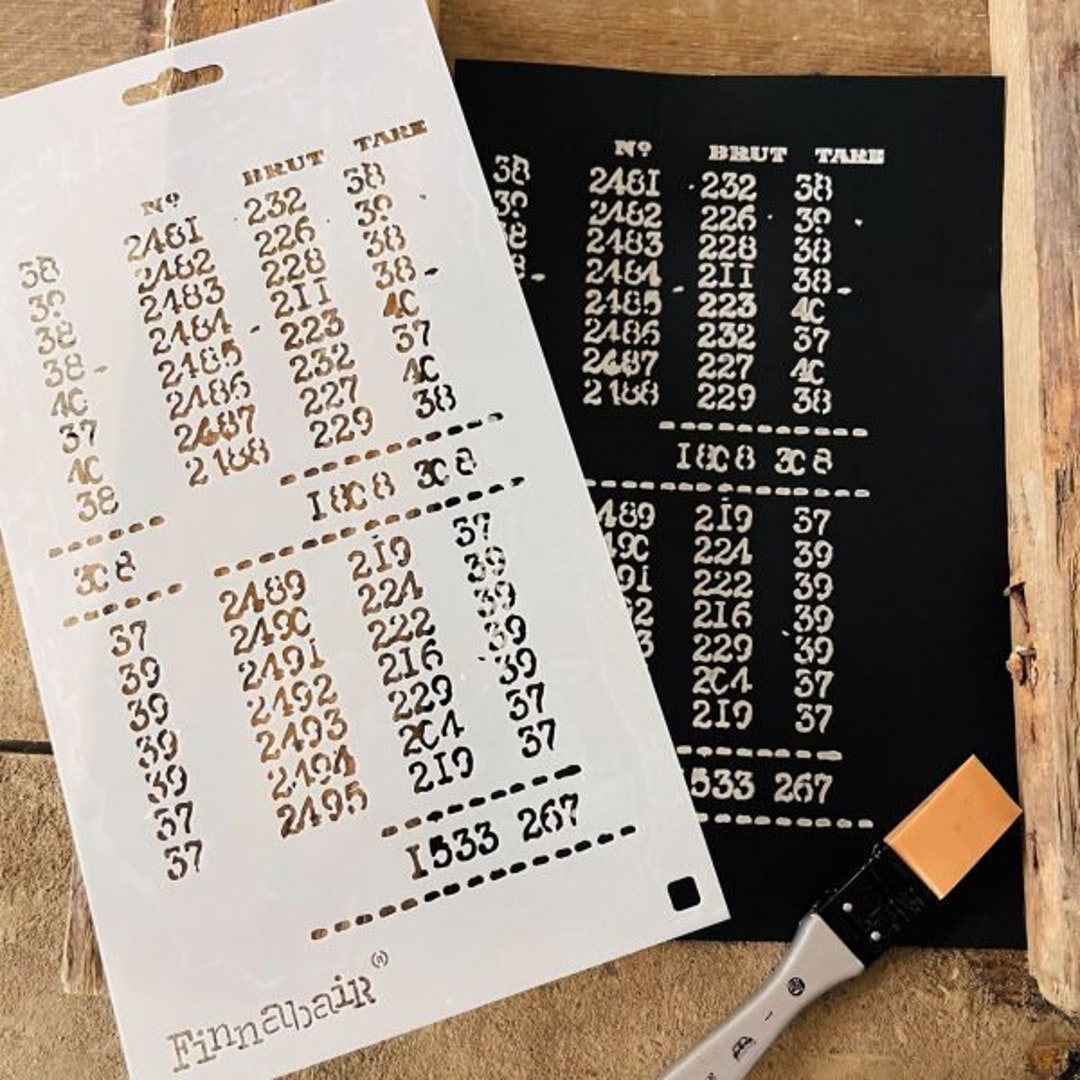 Nº BRUT TARE
2481 232 38
38 2482 226 39
39 2483 228 38
38 2484 211 38-
38- 2485 - 223 40
40 2486 232 37
37 2487 227 40
40 2188 229 38
38
1808 308
308
2489 219 37
37 2490 224 39
39 2491 222 39
39 2492 216 39
39 2493 229 39
39 2494 204 37
37 2495 219 37
37
1533 267
Finnabair(R)
Nº BRUT TARE
38 2481 232 38
39 2482 226 39
38 2483 228 38
2484 211 38-
2485 223 40
2486 232 37
2687 227 40
2188 229 38
1808 308
489 219 37
490 224 39
91 222 39
2 216 39
3 229 39
204 37
219 37
533 267